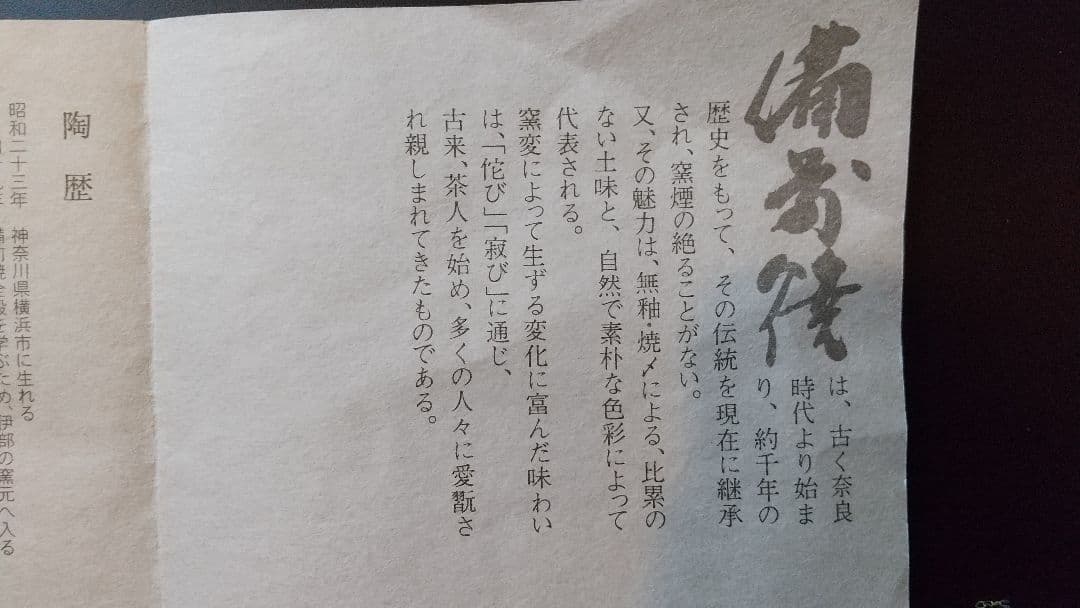 備前焼
は、古く奈良
時代より始ま
り、約千年の
歴史をもって、その伝統を現在に継承
され、窯煙の絶ることがない。
又、その魅力は、無釉・焼〆による、比累の
ない土味と、自然で素朴な色彩によって
代表される。
窯変によって生ずる変化に富んだ味わい
は、「侘び」「寂び」に通じ、
古来、茶人を始め、多くの人々に愛翫さ
れ親しまれてきたものである。
陶歴
昭和二十三年 神奈川県横浜市に生れる
備前焼全般を学ぶため、伊部の窯元へ入る